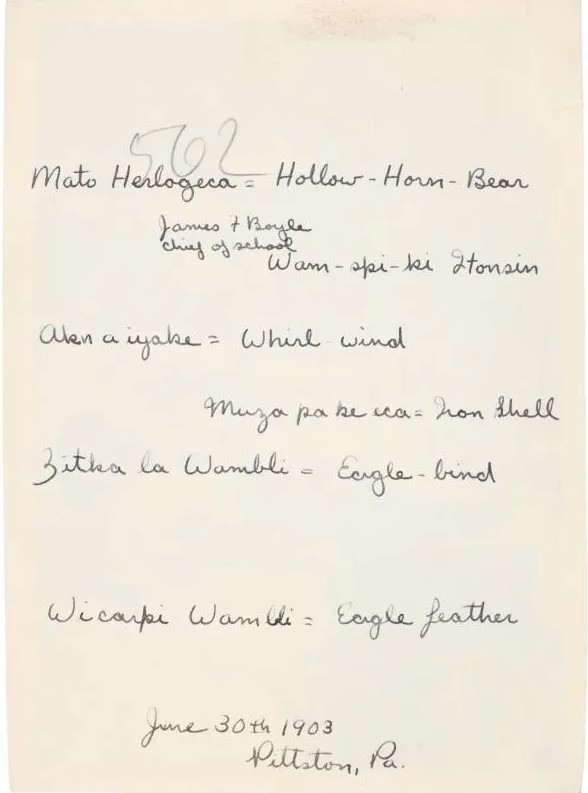 562
Mato Herlogeca = Hollow-Horn-Bear
James F Boyle
chief of school
Wam-spi-ki Itonsin
Akn a iyake = Whirl wind
Muza pa ke ica = Iron Shell
Zitka la Wambli = Eagle-bird
Wicarpi Wambli = Eagle feather
June 30th 1903
Pittston, Pa.